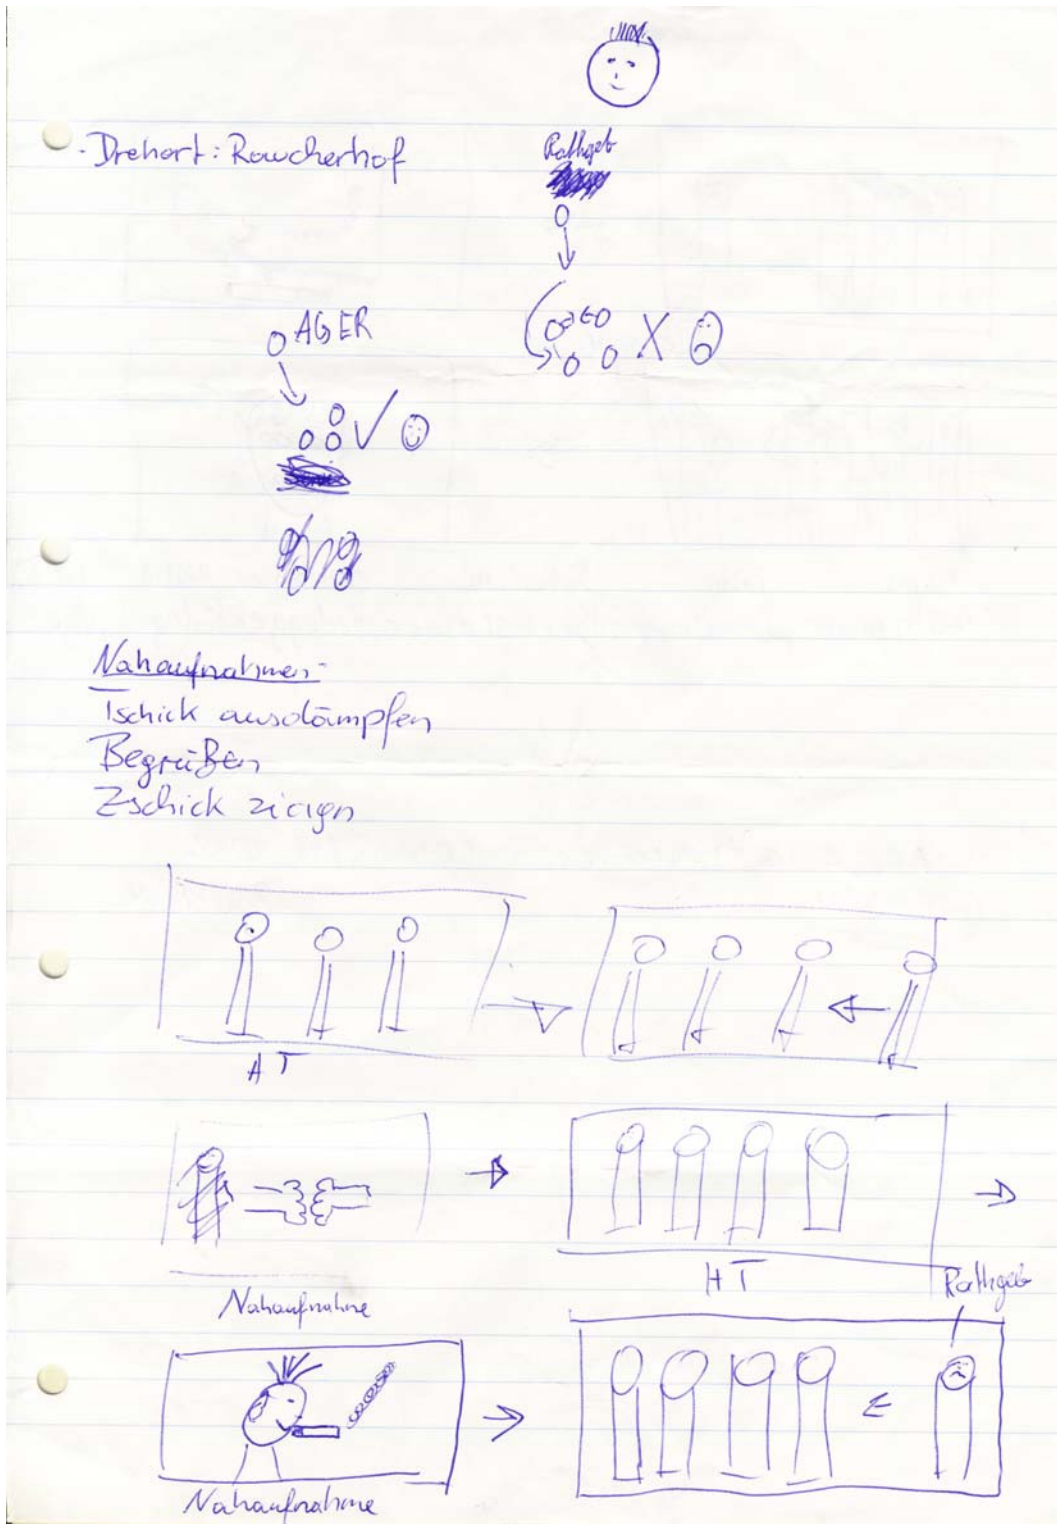 - Drehort: Raucherhof
Rathgeb
AGER
X
Nahaufnahmen:
Tschick ausdämpfen
Begrüßen
Zschick ziagn
HT
Nahaufnahme
HT
Rathgeb
Nahaufnahme